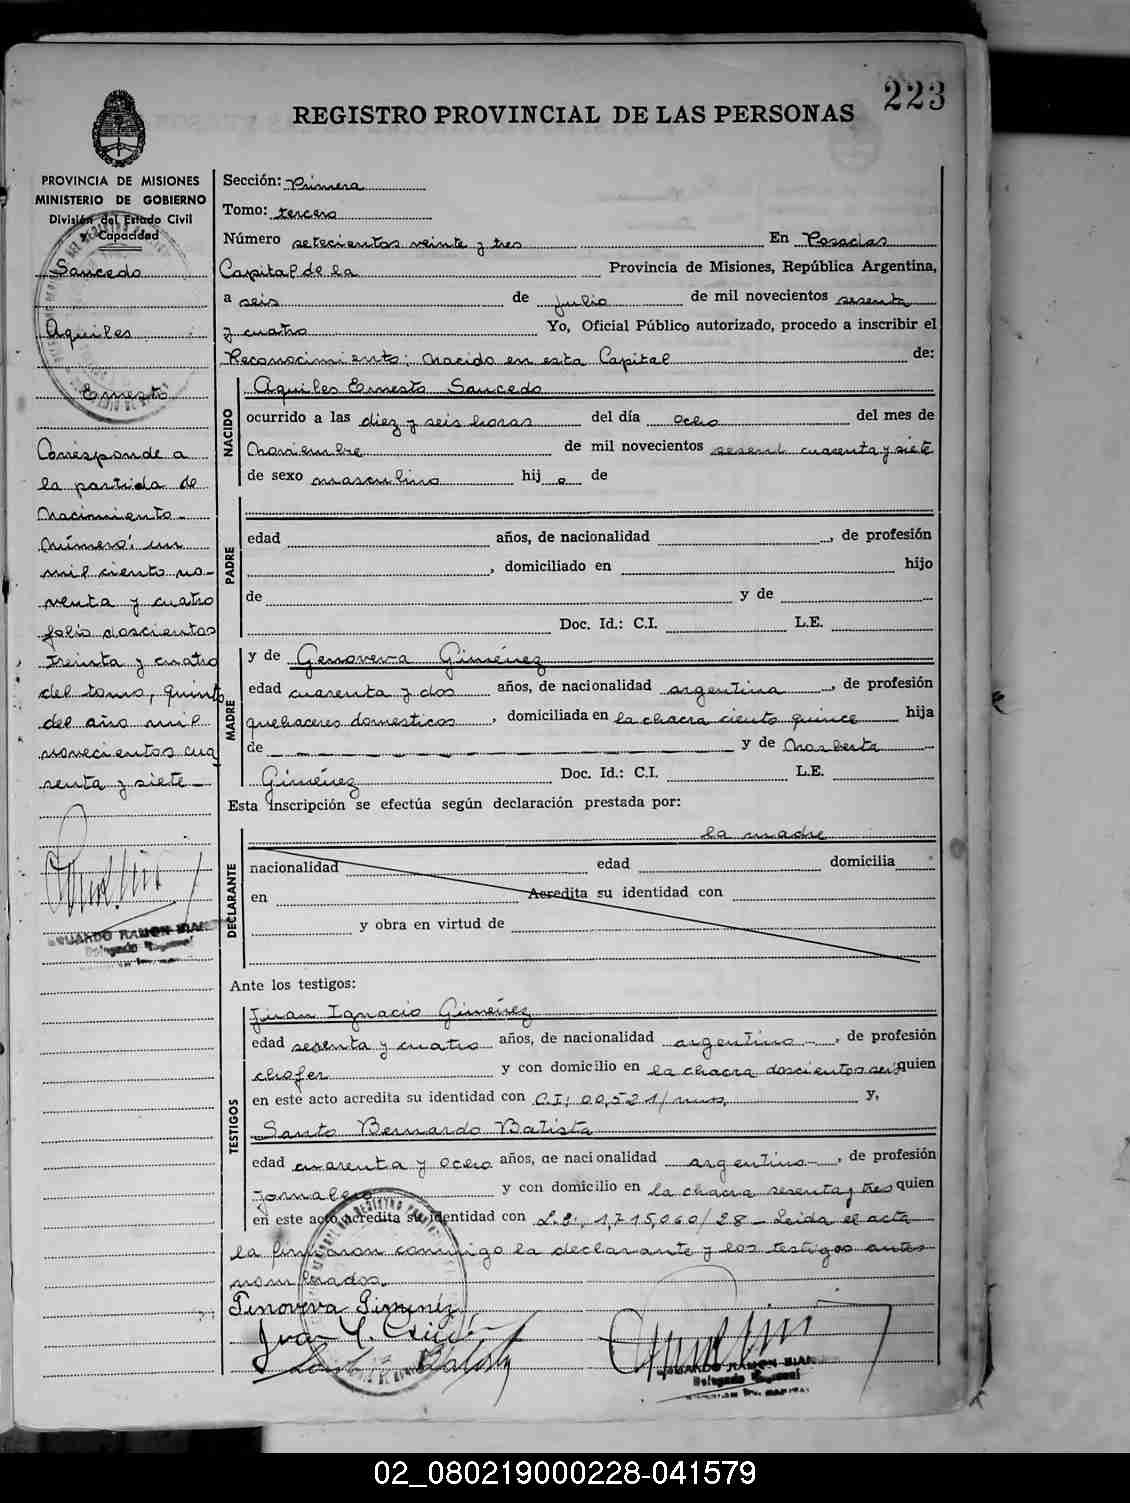 223
REGISTRO PROVINCIAL DE LAS PERSONAS
PROVINCIA DE MISIONES
MINISTERIO DE GOBIERNO
División del Estado Civil
y Capacidad
Saucedo
Aquiles
Ernesto
Corresponde a
la partida de
Nacimiento
Número: un
mil ciento no-
venta y cuatro
folio doscientos
treinta y cuatro
del tomo, quinto
del año mil
novecientos cua
renta y siete
EDUARDO RAMON
Delegado Regional
Sección: Primera
Tomo: tercero
Número setecientos veinte y tres En Posadas
Capital de la Provincia de Misiones, República Argentina,
a seis de julio de mil novecientos sesenta
y cuatro Yo, Oficial Público autorizado, procedo a inscribir el
Reconocimiento: Nacido en esta Capital de:
NACIDO
Aquiles Ernesto Saucedo
ocurrido a las diez y seis horas del día ocho del mes de
Noviembre de mil novecientos cuarenta y siete
de sexo masculino hij o de
PADRE
edad años, de nacionalidad , de profesión
, domiciliado en hijo
de y de
Doc. Id.: C.I. L.E.
MADRE
y de Genoveva Giménez
edad cuarenta y dos años, de nacionalidad argentina , de profesión
quehaceres domesticos , domiciliada en la chacra ciento quince hija
de y de Norberta
Giménez Doc. Id.: C.I. L.E.
Esta inscripción se efectúa según declaración prestada por:
DECLARANTE
la madre
nacionalidad edad domicilia
en Acredita su identidad con
y obra en virtud de
Ante los testigos:
TESTIGOS
Juan Ignacio Giménez
edad sesenta y cuatro años, de nacionalidad argentino , de profesión
chofer y con domicilio en la chacra doscientos seis quien
en este acto acredita su identidad con C.I: 00,521/ y,
Santo Bernardo Batista
edad cuarenta y ocho años, de nacionalidad argentino , de profesión
jornalero y con domicilio en la chacra sesenta y tres quien
en este acto acredita su identidad con L.E: 1,715,060/28 - Leida el acta
la firmaron conmigo la declarante y los testigos antes
nombrados.
Genoveva Gimenez
EDUARDO RAMON
Delegado Regional
02_080219000228-041579